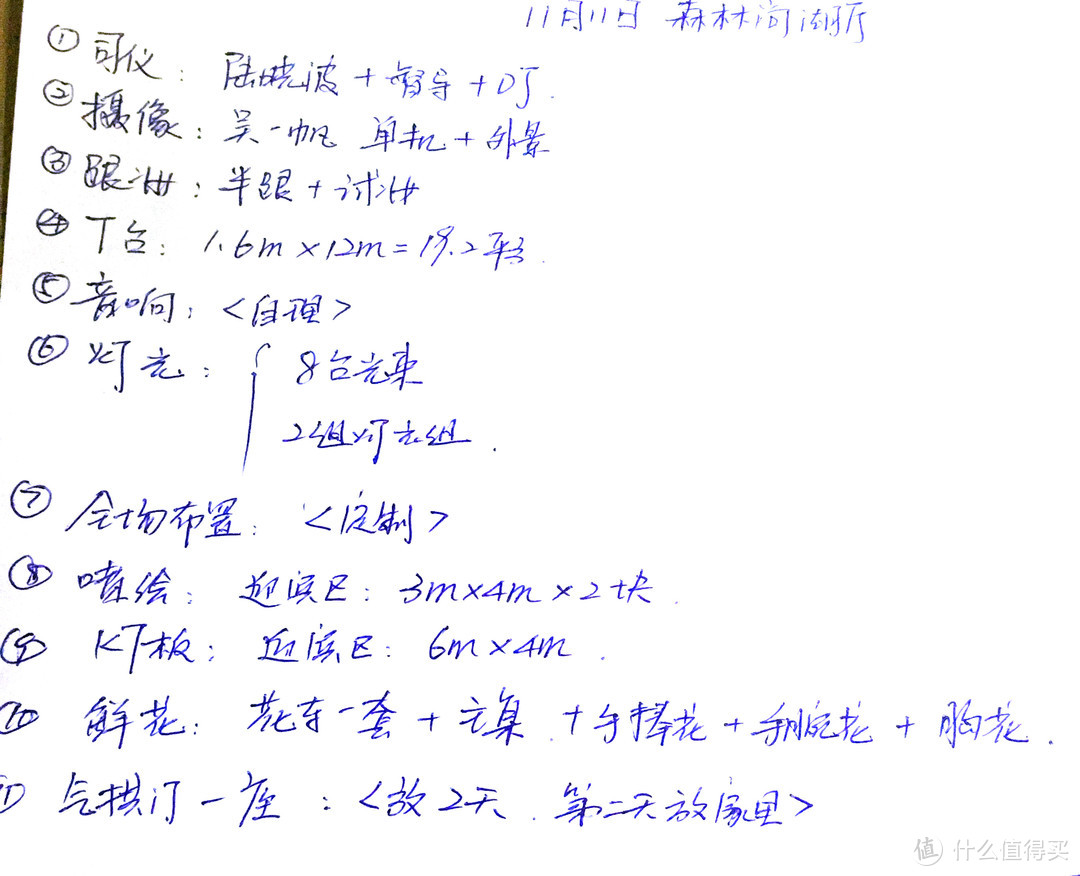 11月11日 森林尚湖厅
① 司仪：陆晓波+督导+DJ.
② 摄像：吴一帆 单机+外景
③ 跟妆：半跟+试妆
④ T台：1.6m×12m=19.2平方.
⑤ 音响：<自理>
⑥ 灯光：{ 8台光束
2组灯光组.
⑦ 全场布置：<定制>
⑧ 喷绘：迎宾区：3m×4m×2块.
⑨ KT板：迎宾区：6m×4m.
⑩ 鲜花：花车一套++手捧花+手腕花+胸花.
⑪ 气拱门一座：<放2天.第二天放家里>
值 什么值得买